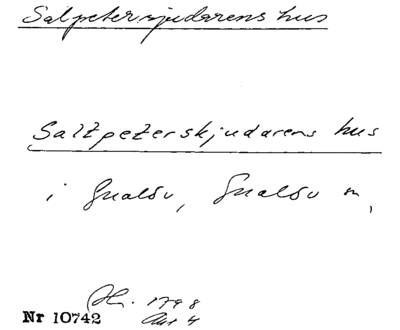 Salpetersjudarens hus
Saltpeterskjudarens hus
i Gualöv, Gualöv sn,
1798
Nr 10742 Akt 4